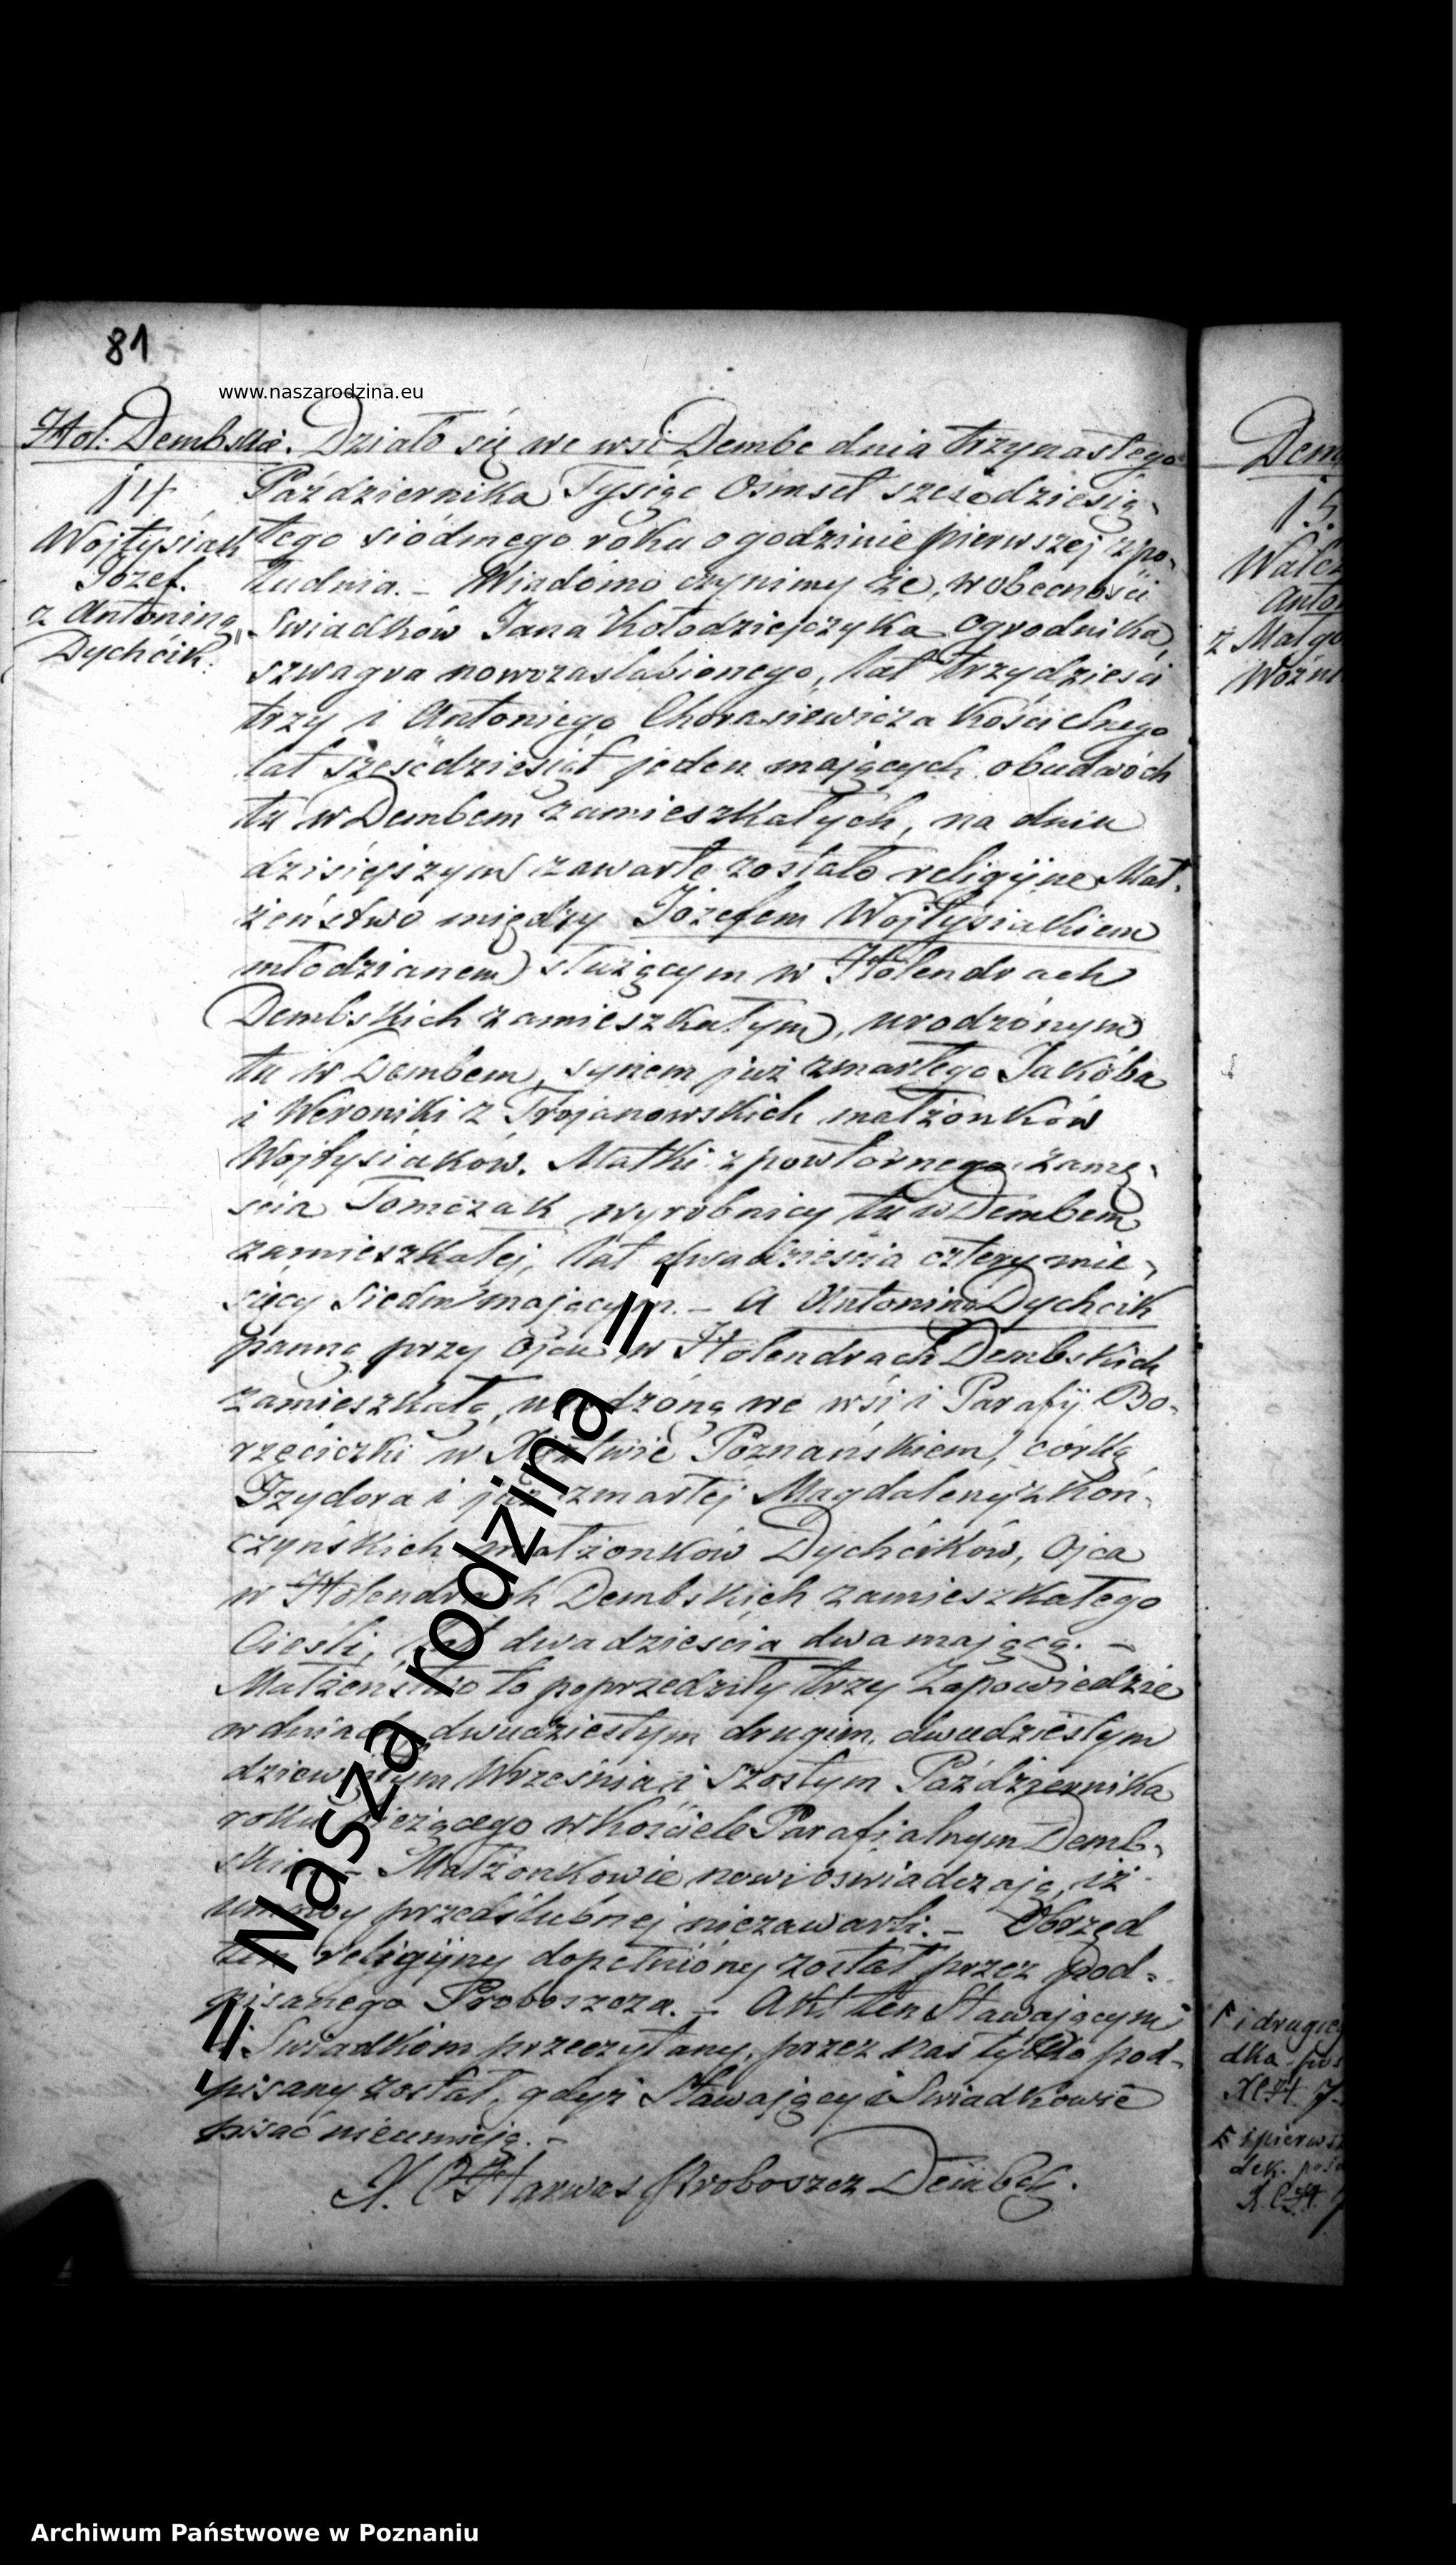 81
www.naszarodzina.eu
Hol: Dembskie.
14
Wojtysiak
Józef.
z Antoniną
Dychćik.
Działo się we wsi Dembe dnia trzynastego
Października Tysiąc Osmset sześcdziesią-
tego siódmego roku o godzinie pierwszej z po-
łudnia. – Wiadomo czynimy że, w obecności
Swiadków Jana Kołodziejczyka Ogrodnika,
szwagra nowozaslubionego, lat trzydzieści
trzy i Antoniego Chorasiewicza Kościelnego
lat sześćdziesiąt jeden mających obudwóch
tu w Dembem zamieszkałych, na dniu
dzisiejszym zawarte zostało religijne Mał-
żeństwo między Józefem Wojtysiakiem
młodzianem służącym w Holendrach
Dembskich zamieszkałym, urodzónym
tu w Dembem, synem już zmarłego Jakóba
i Weroniki z Trojanowskich małżonków
Wojtysiaków. Matki z powtórnego zamę-
ścia Tomczak wyrobnicy tu w Dembem
zamieszkałej, lat dwadzieścia cztery mie-
sięcy siedm mającym. – A Antoniną Dychcik
panną przy Ojcu w Holendrach Dembskich
zamieszkałą, urodzóną we wsi i Parafij Bo-
rzęciczki w Xięstwie Poznańskiem, córką
Izydora i już zmarłej Magdaleny z Koń-
czyńskich małżonków Dychćików, Ojca
w Holendrach Dembskich zamieszkałego
Cieśli, lat dwadzieścia dwa mającą. –
Małżeństwo to poprzedziły trzy Zapowiedzie
w dniach dwudziestym drugim, dwudziestym
dziewiątym Września i szóstym Października
roku bieżącego w Kościele Parafialnym Demb-
skim – Małżonkowie nowi oświadczają, iż
umowy przedślubnej niezawarli. – Obrzęd
ten religijny dopełniony został przez Pod-
pisanego Proboszcza. – Akt ten Stawającym
i Swiadkom przeczytany, przez nas tylko pod-
pisany został, gdyż Stawający i Swiadkowie
pisać nieumieją. –
X. C Harwas Proboszcz Dembsk.
Dem
15.
Walcz
Anto
z Małgo
Woźni
i drugie
dka
i pierws
dek.
-= Nasza rodzina =-
Archiwum Państwowe w Poznaniu